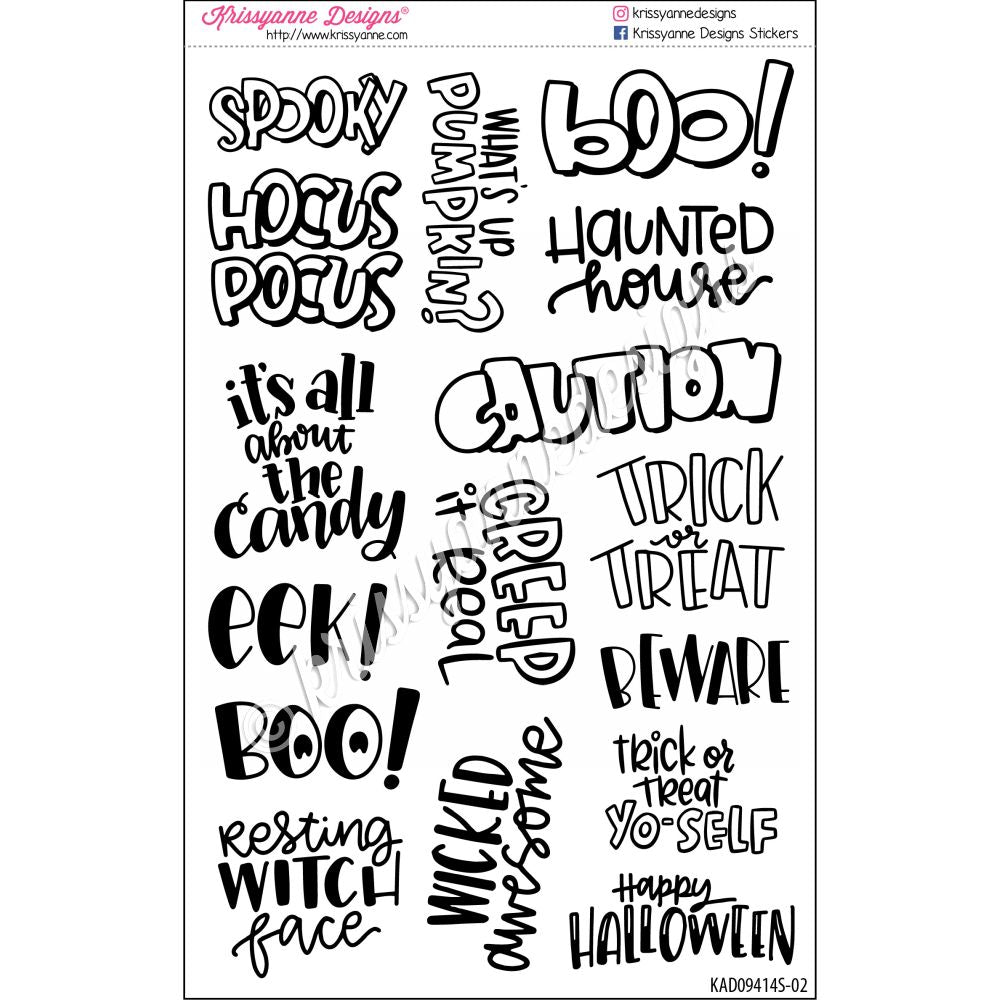 Krissyanne Designs®
http://www.krissyanne.com
krissyannedesigns
Krissyanne Designs Stickers
SPOOKY
HOCUS
POCUS
it's all
about
the
Candy
eek!
BOO!
Resting
WITCH
face
WHAT'S UP
PUMPKIN?
boo!
HAUNTED
house
CAUTION
CREEP
it real
TRICK
or
TREAT
BEWARE
WICKED
awesome
TRICK or
TREAT
YO-SELF
Happy
HALLOWEEN
© krissyannedesigns
KAD09414S-02